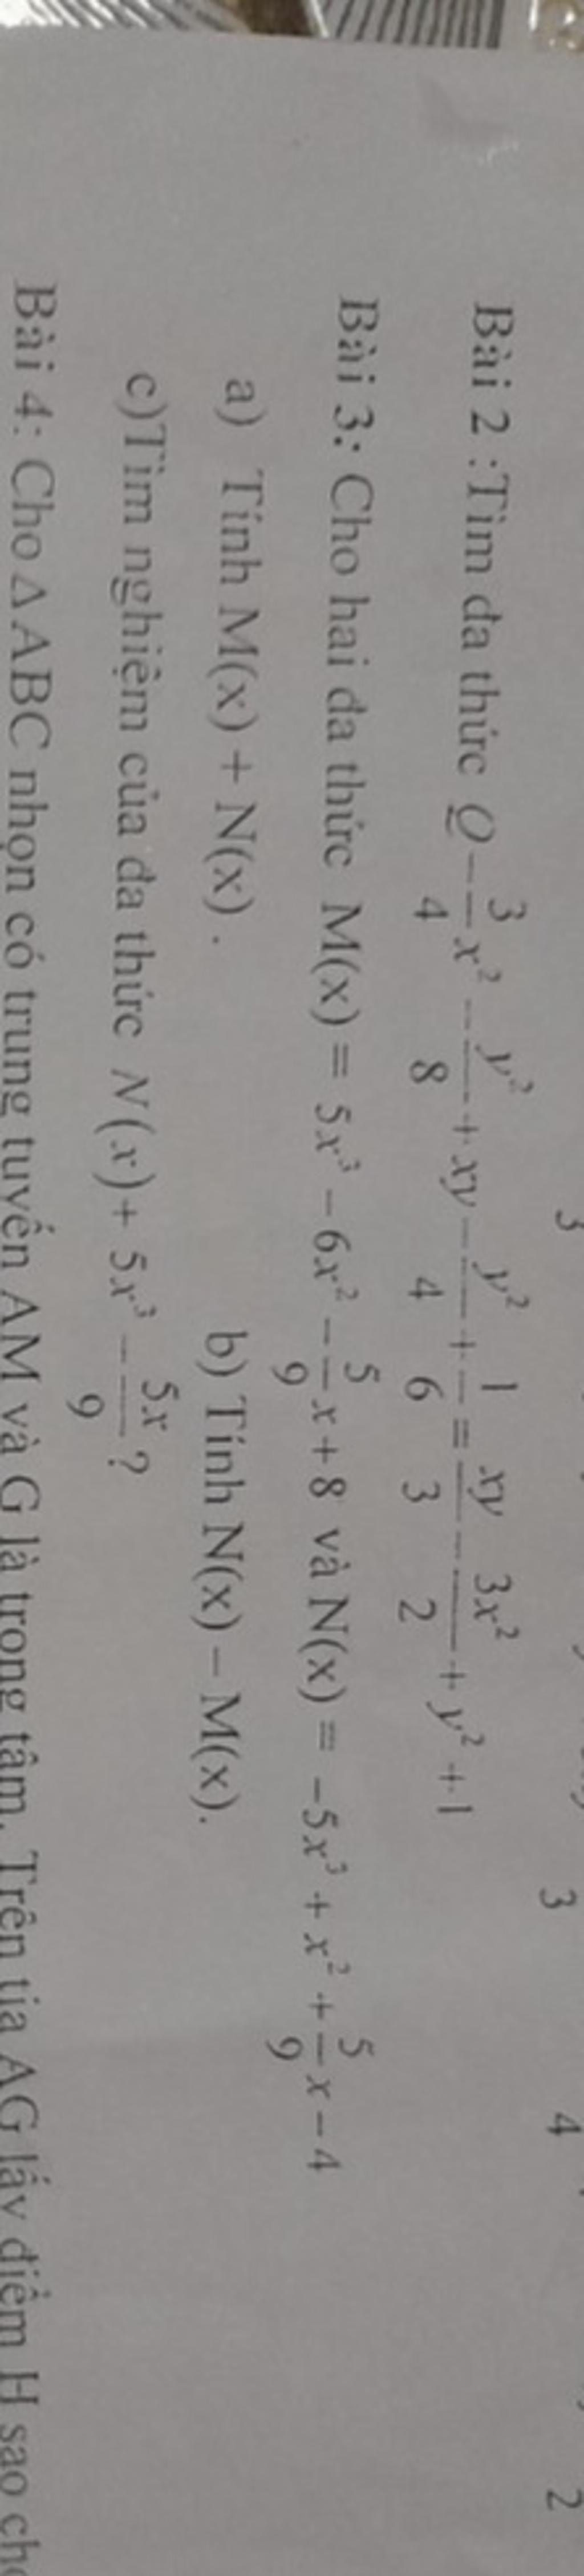 3 3 4 2
Bài 2 :Tìm đa thức Q - 3/4 x² - y²/8 + xy - y²/4 + 1/6 = xy/3 - 3x²/2 + y² + 1
Bài 3: Cho hai đa thức M(x) = 5x³ - 6x² - 5/9 x + 8 và N(x) = -5x³ + x² + 5/9 x - 4
a) Tính M(x) + N(x). b) Tính N(x) - M(x).
c)Tìm nghiệm của đa thức N(x) + 5x³ - 5x/9 ?
Bài 4: Cho △ABC nhọn có trung tuyến AM và G là trọng tâm. Trên tia AG lấy điểm H sao cho